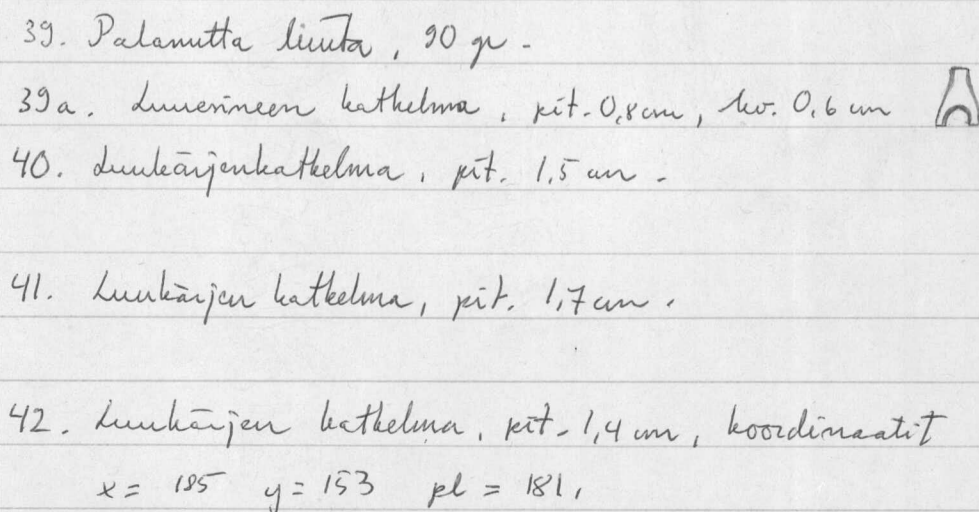 39. Palanutta luuta, 90 gr.
39a. Luuesineen katkelma, pit. 0,8 cm, lev. 0,6 cm
40. Luukärjenkatkelma, pit. 1,5 cm.
41. Luukärjen katkelma, pit. 1,7 cm.
42. Luukärjen katkelma, pit. 1,4 cm, koordinaatit
x = 185 y = 153 pl = 181,